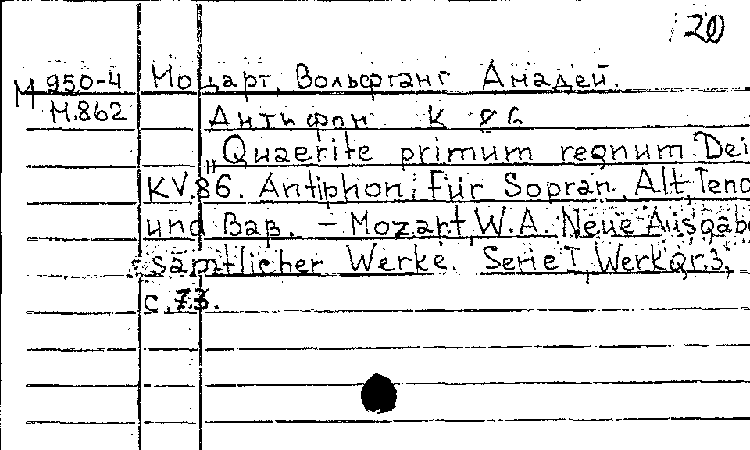 20
М 950-4 Моцарт, Вольфганг Амадей.
М.862 Антифон К 86
„Quaerite primum regnum Dei
KV.86. Antiphon; Für Sopran, Alt, Teno
und Baß. – Mozart, W.A. Neue Ausgabe
sämtlicher Werke. Serie I, Werkgr.3,
с.73.